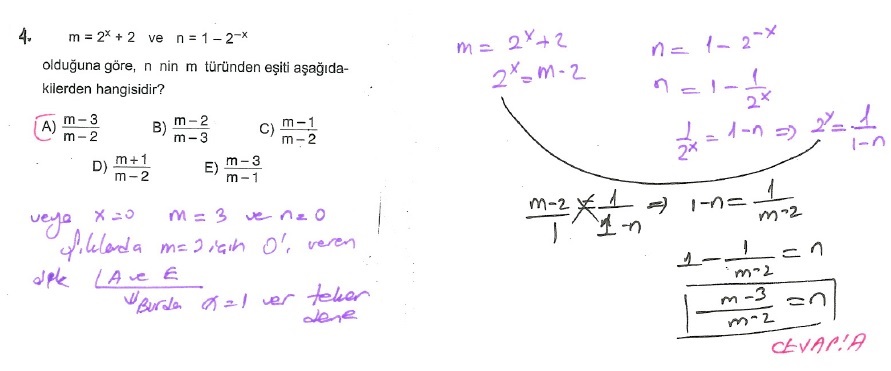 4. m = 2ˣ + 2 ve n = 1 – 2⁻ˣ
olduğuna göre, n nin m türünden eşiti aşağıda-
kilerden hangisidir?
A) (m – 3)/(m – 2) B) (m – 2)/(m – 3) C) (m – 1)/(m – 2)
D) (m + 1)/(m – 2) E) (m – 3)/(m – 1)
veya x=0 m = 3 ve n=0
şıklarda için 0'ı veren
A ve E
Burda x=1 ver tekrar
dene
m = 2ˣ+2
2ˣ = m - 2
n = 1 - 2⁻ˣ
n = 1 - 1/2ˣ
1/2ˣ = 1-n ⇒ 2ˣ = 1/(1-n)
(m-2)/1 = 1/(1-n) ⇒ 1-n = 1/(m-2)
1 - 1/(m-2) = n
(m-3)/(m-2) = n
CEVAP: A